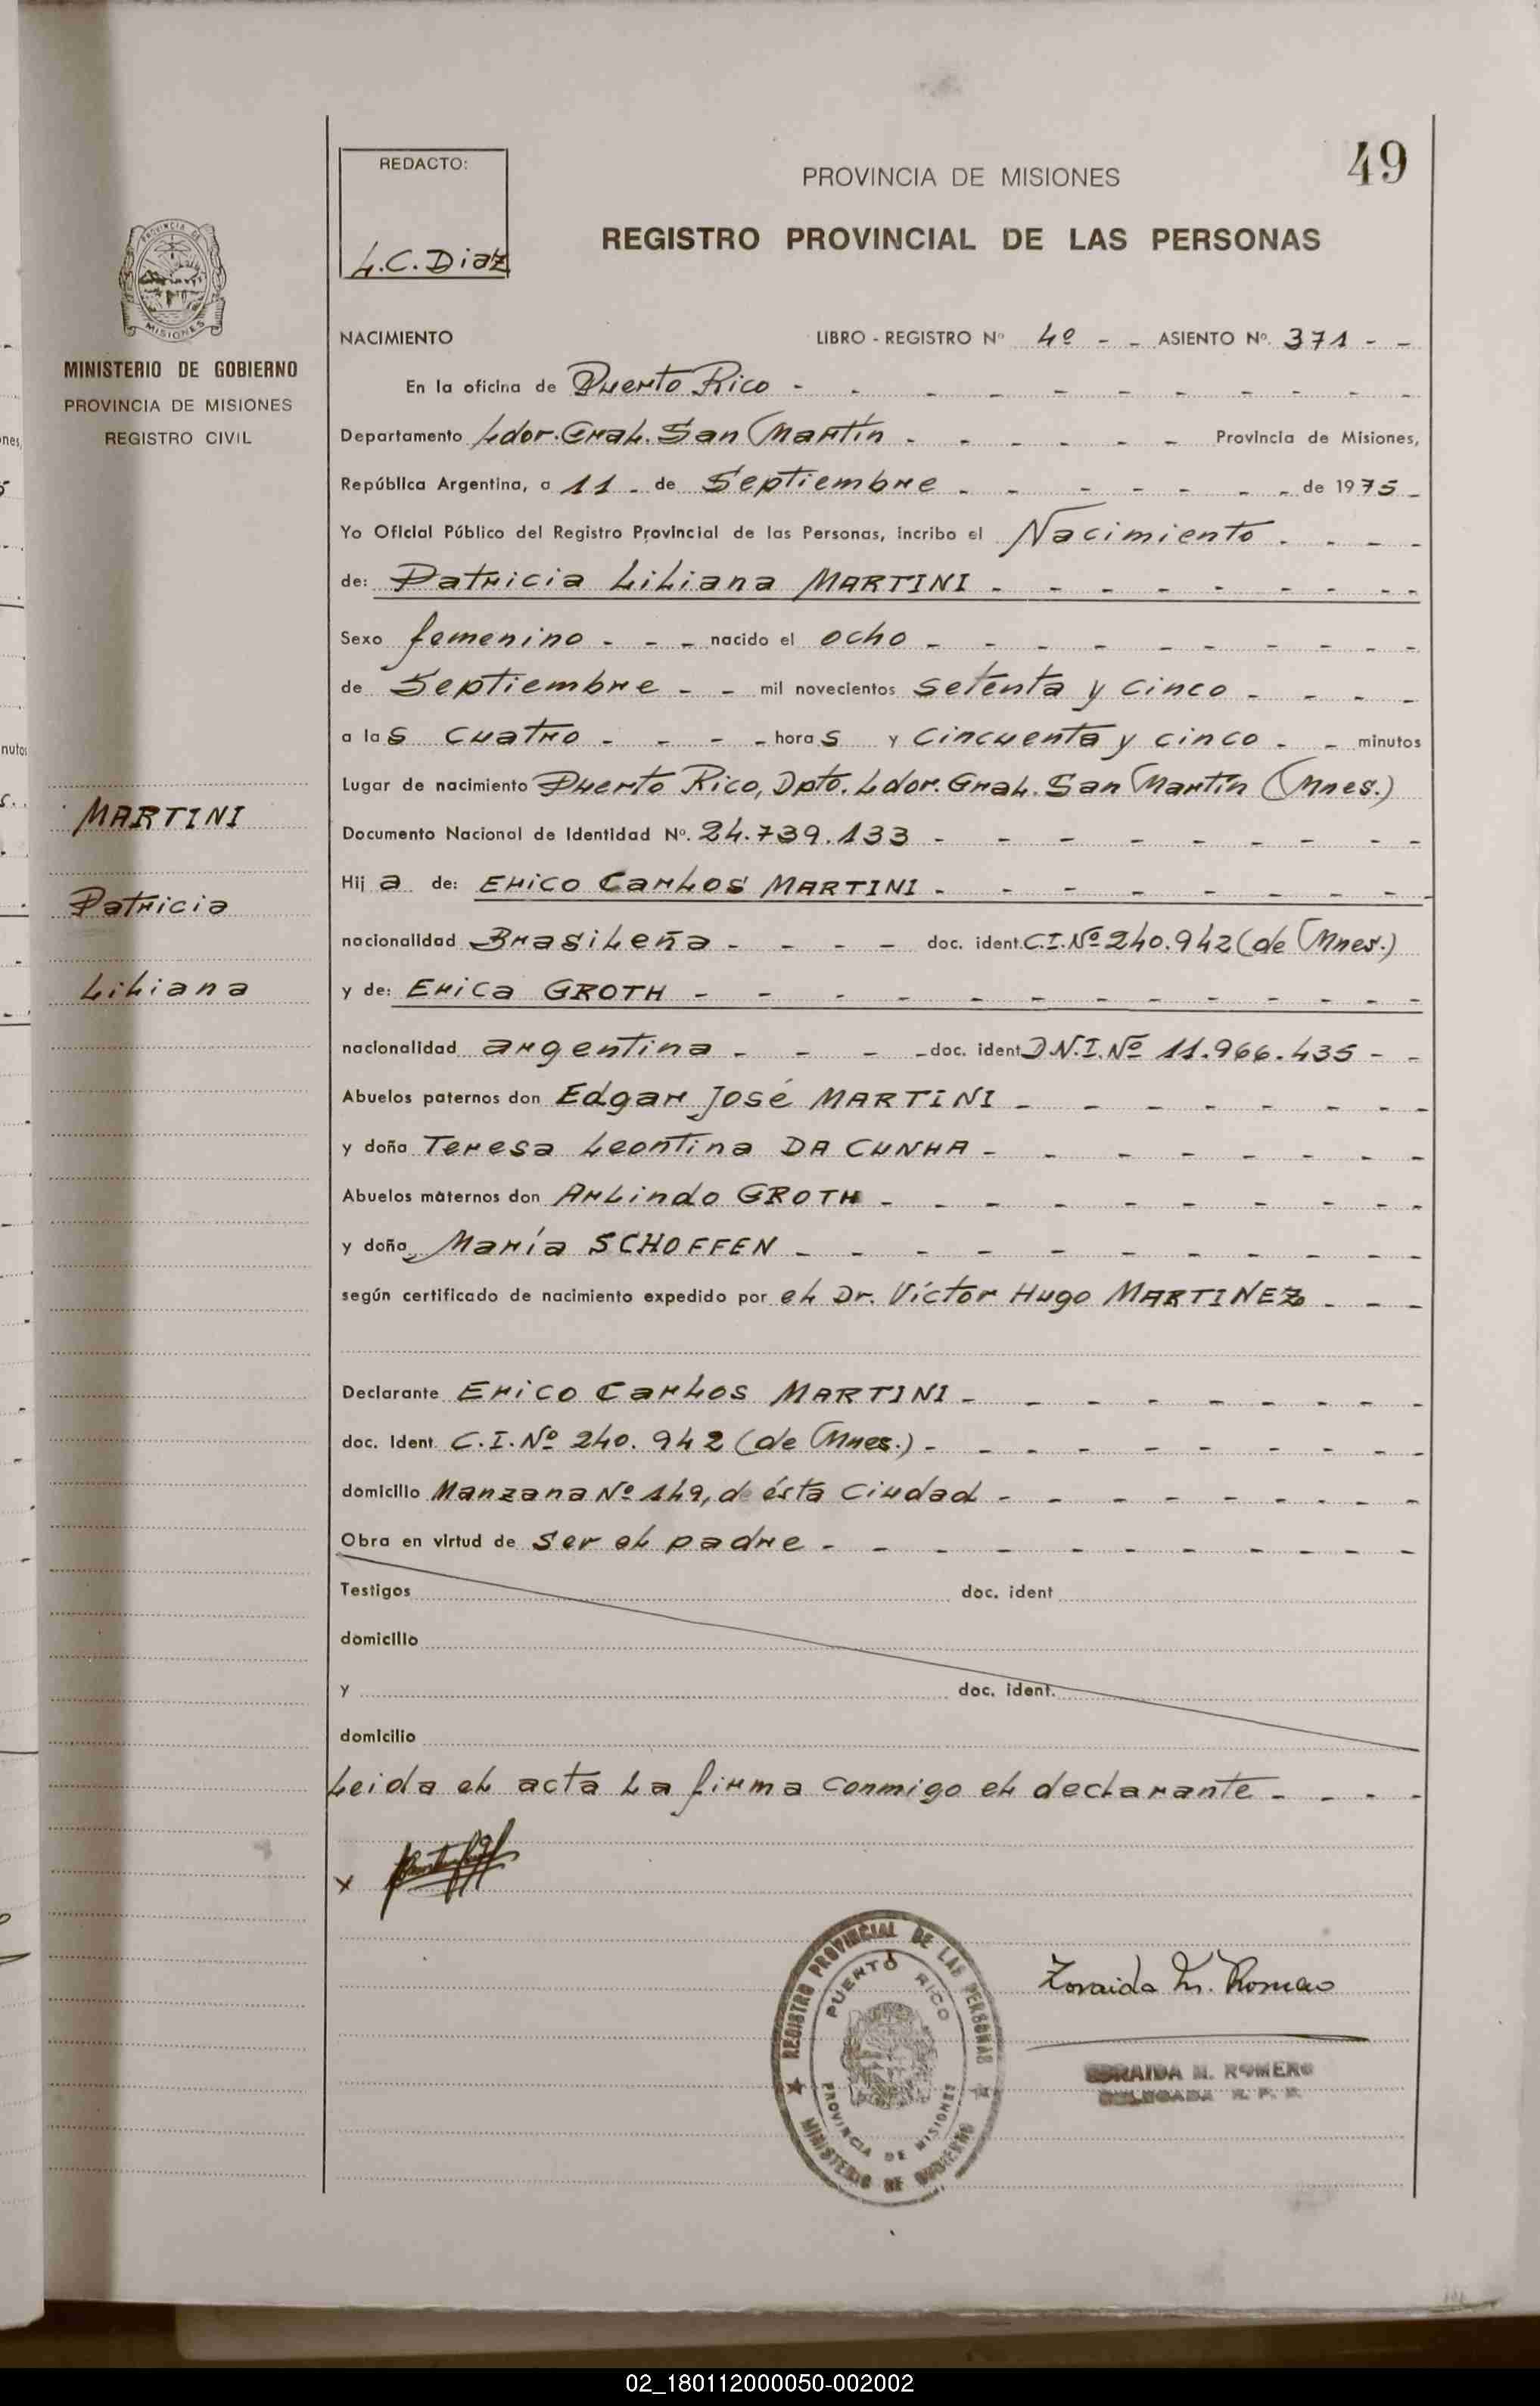 REDACTO:
L.C. Diaz
PROVINCIA DE MISIONES
49
REGISTRO PROVINCIAL DE LAS PERSONAS
MISIONES
MINISTERIO DE GOBIERNO
PROVINCIA DE MISIONES
REGISTRO CIVIL
MARTINI
Patricia
Liliana
NACIMIENTO LIBRO - REGISTRO Nº 4º - - ASIENTO Nº. 371 - -
En la oficina de Puerto Rico -
Departamento Ldor. Gral. San Martín - Provincia de Misiones,
República Argentina, a 11 - de Septiembre - de 1975 -
Yo Oficial Público del Registro Provincial de las Personas, incribo el Nacimiento -
de: Patricia Liliana MARTINI -
Sexo femenino - - - nacido el ocho -
de Septiembre - - mil novecientos setenta y cinco -
a las cuatro - - - - horas y cincuenta y cinco - - minutos
Lugar de nacimiento Puerto Rico, Dpto. Ldor. Gral. San Martín (Mnes.)
Documento Nacional de Identidad Nº. 24.739.133 -
Hija de: Erico Carlos MARTINI -
nacionalidad Brasileña - - - - doc. ident. C.I. Nº 240.942 (de Mnes.)
y de: Erica GROTH -
nacionalidad argentina - - - - doc. ident D.N.I. Nº 11.966.435 - -
Abuelos paternos don Edgar José MARTINI -
y doña Teresa Leontina DA CUNHA -
Abuelos maternos don Arlindo GROTH -
y doña María SCHOFFEN -
según certificado de nacimiento expedido por el Dr. Víctor Hugo MARTINEZ - - -
Declarante Erico Carlos MARTINI -
doc. Ident. C.I. Nº 240.942 (de Mnes.) -
domicilio Manzana Nº 149, de ésta Ciudad -
Obra en virtud de ser el padre -
Testigos doc. ident
domicilio
y doc. ident.
domicilio
Leida el acta la firma conmigo el declarante - - - -
x
REGISTRO PROVINCIAL DE LAS PERSONAS
PUERTO RICO
PROVINCIA DE MISIONES
MINISTERIO DE GOBIERNO
Zoraida M. Romero
ZORAIDA M. ROMERO
DELEGADA R. P. P.
02_180112000050-002002